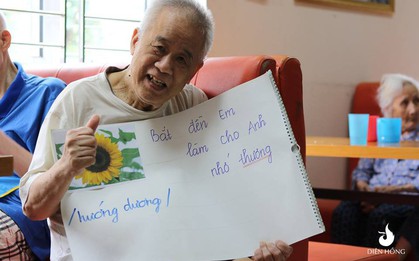 Bắt đền Em
làm cho Anh
nhớ thương
/hướng dương/
DIÊN HỒNG